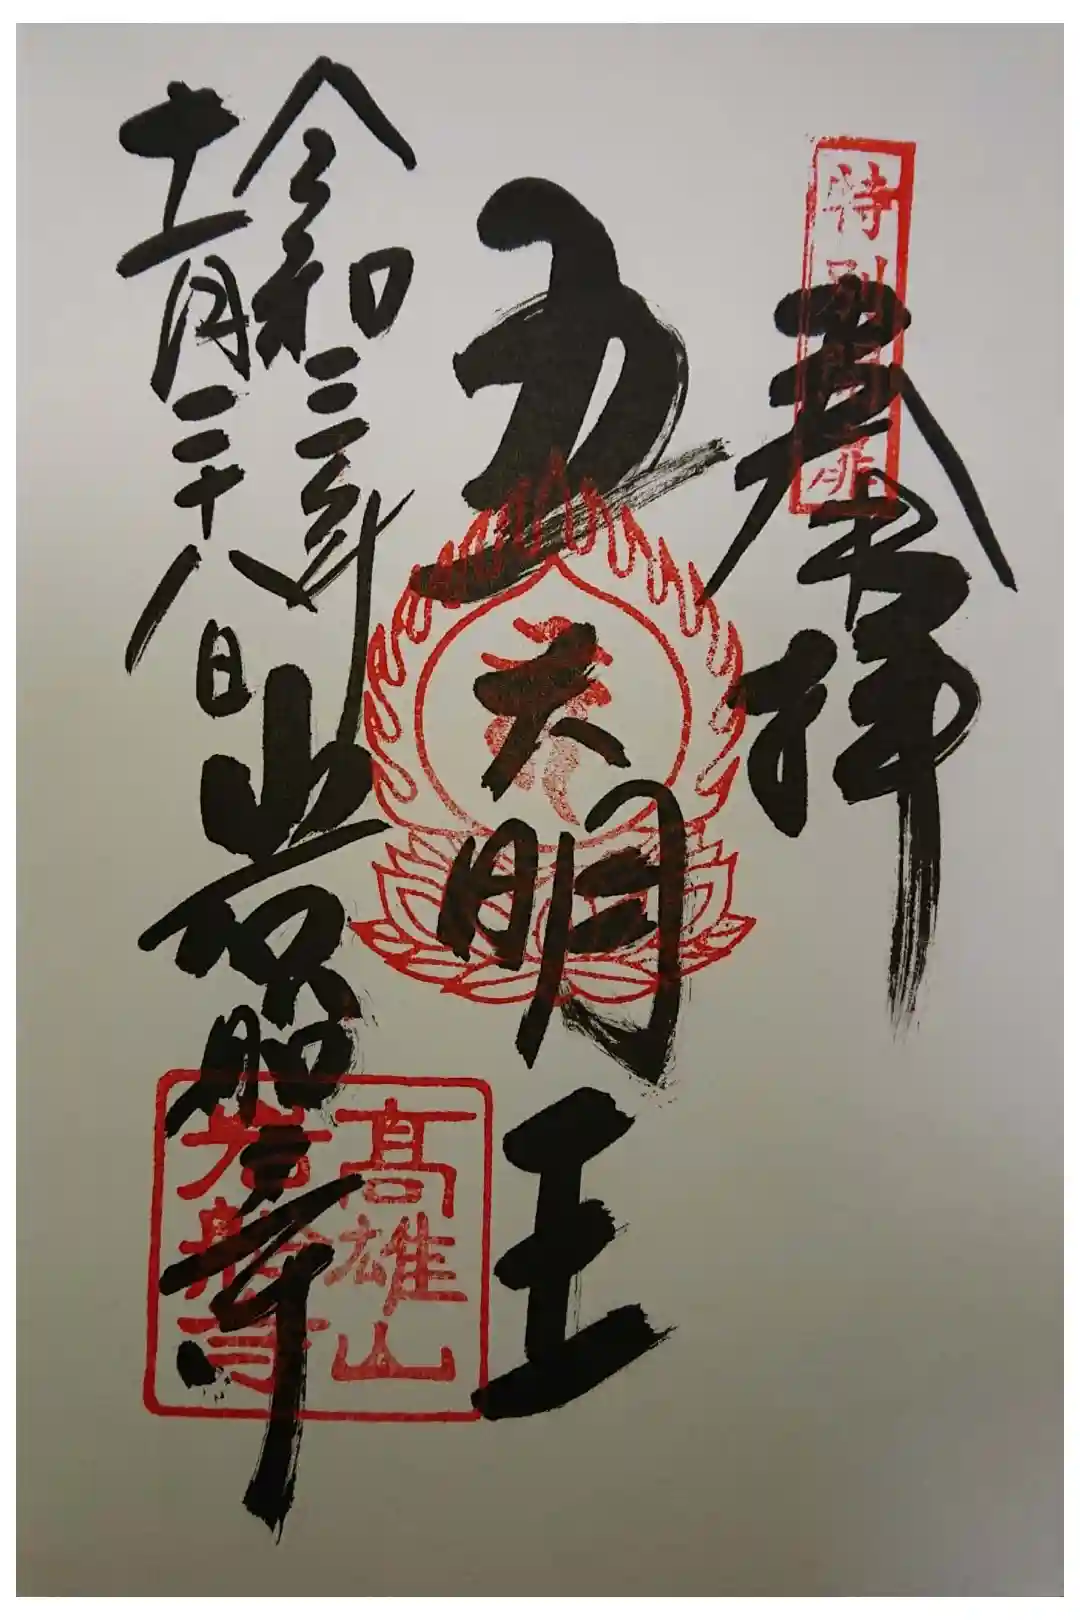 特別開扉
奉拝
五大明王
令和三年
十一月二十八日
岩船寺
髙雄山
岩船寺